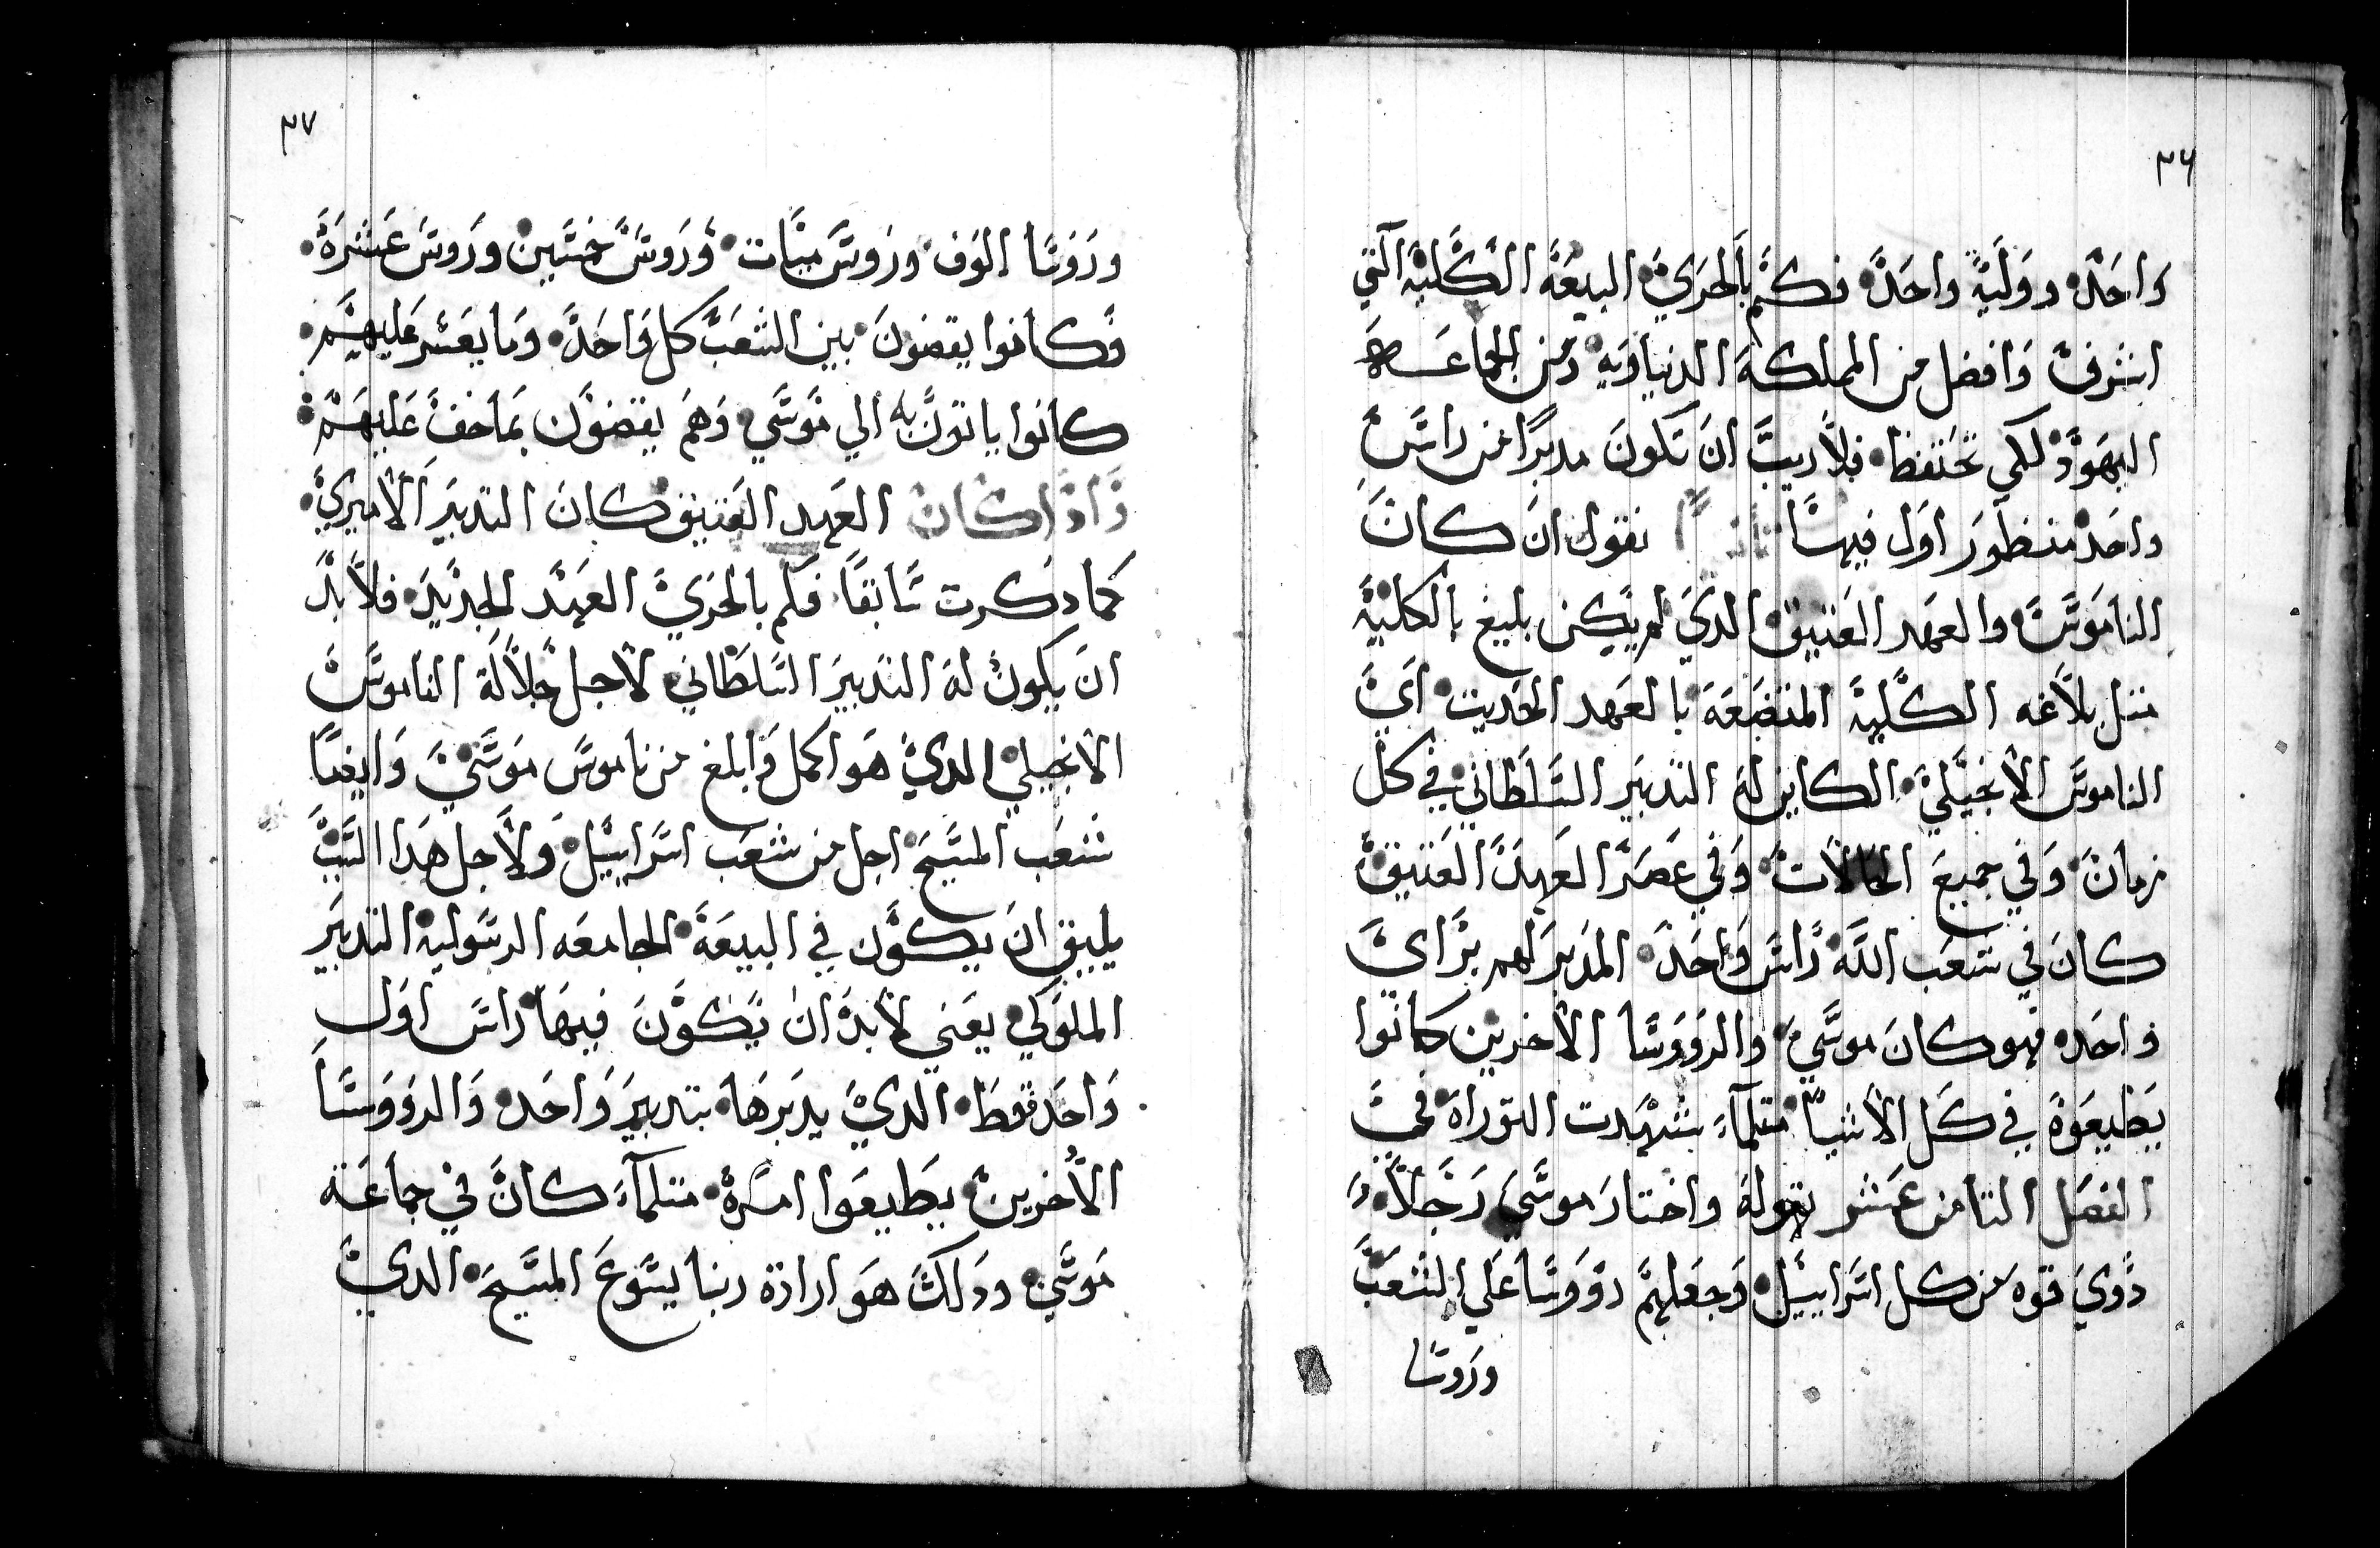 ٣٦
واحده دوليه واحده فكم بالحري البيعه الكليه التي
اشرف وافضل من المملكه الدنياويه ومن الجماعه
اليهود لكي تحتفظ فلا ريب ان تكون مدبرا من راس
واحد منظور اول فيها ثانيا نقول ان كان
الناموس والعهد العتيق الدي لم يكن بليغ بالكليه
متل بلاغه الكليه المتضعه بالعهد الحديت اي
الناموس الانجيلي الكاين له التدبير السلطاني في كل
زمان وفي جميع الحالات وفي عصر العهد العتيق
كان في شعب الله راس واحد المدبر لهم براي
واحده فهو كان موسي والرووسا الاخرين كانوا
يطيعوه في كل الاشيا متلما شهدت التوراه في
الفصل التامن عشر بقوله واختار موسي رجلا
دوي قوه من كل اسراييل وجعلهم رووسا علي الشعب
وروسا
٣٧
وروسا الوف وروس ميات وروس خمسين وروس عشره
فكانوا يقضون بين الشعب كل واحد وما يعسر عليهم
كانوا ياتون به الي موسي وهم يقضون بما خف عليهم
فاذا كان العهد العتيق كان التدبير الاميري
كما دكرت سابقا فكم بالحري العهد الجديد فلا بد
ان يكون له التدبير السلطاني لاجل جلالة الناموس
الانجيلي الدي هو اكمل وابلغ من ناموس موسي وايضا
شعب المسيح اجل من شعب اسراييل ولاجل هدا السبب
يليق ان يكون في البيعه الجامعه الرسوليه التدبير
الملوكي يعني لابد ان يكون فيها راس اول
واحد فقط الدي يدبرها بتدبير واحد والرووسا
الاخرين يطيعوا امره متلما كان في جماعة
موسي ودلك هو ارادة ربنا يسوع المسيح الدي